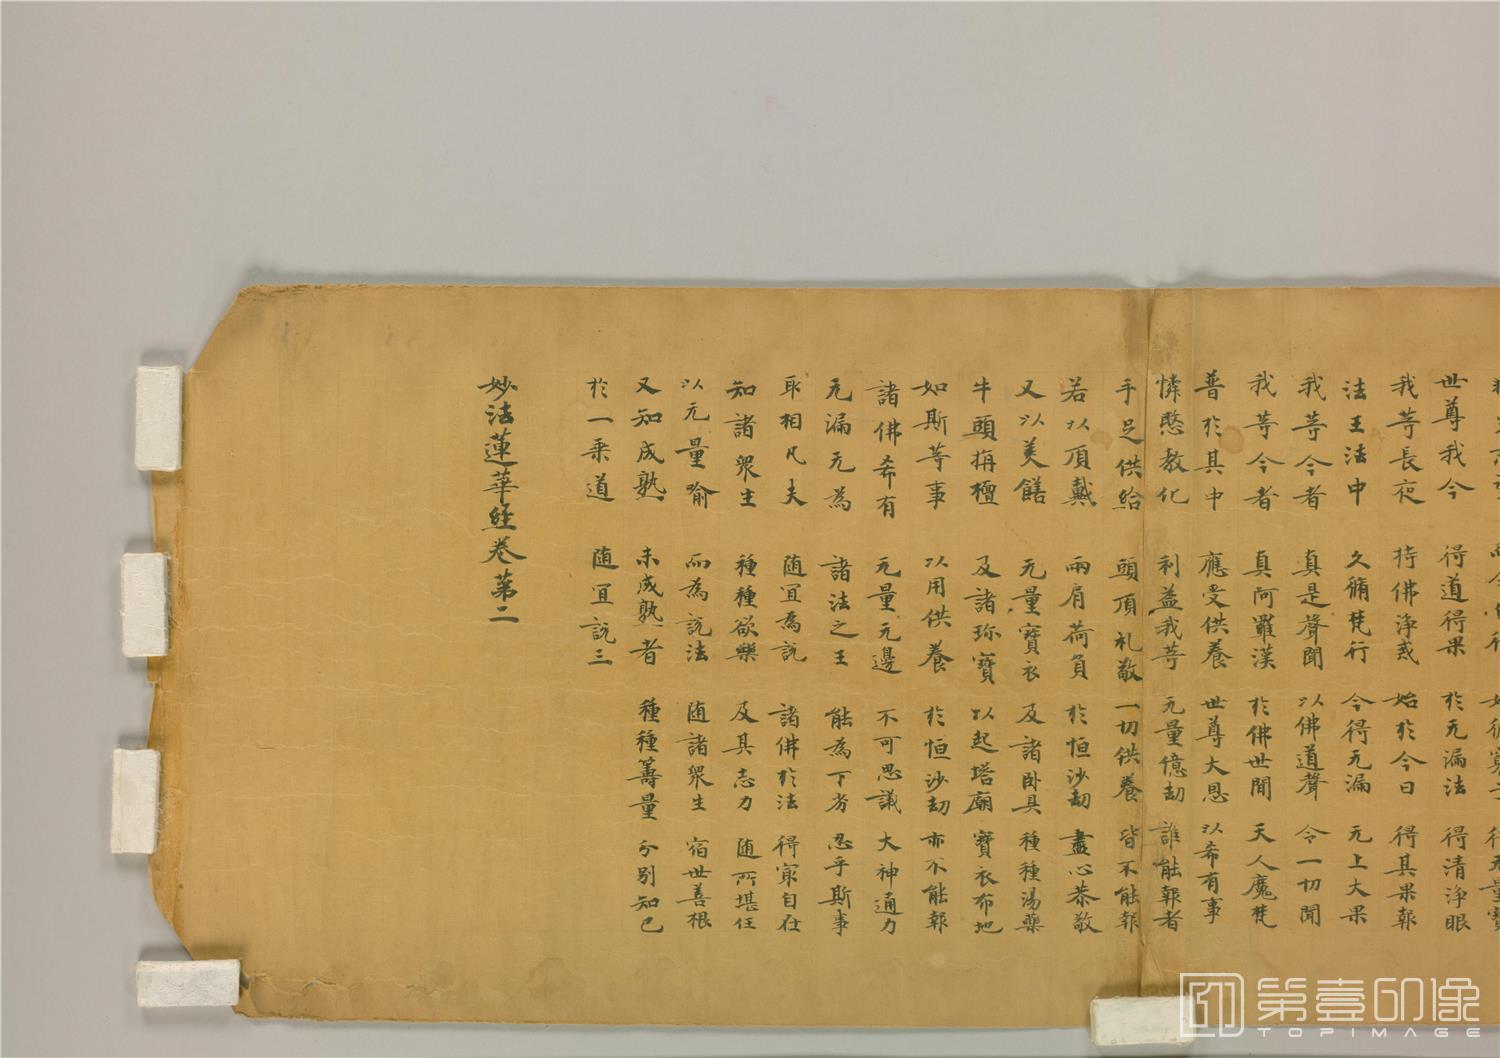 世尊我今 得道得果 於无漏法 得清淨眼
我等長夜 持佛淨戒 始於今日 得其果報
法王法中 久脩梵行 今得无漏 无上大果
我等今者 真是聲聞 以佛道聲 令一切聞
我等今者 真阿羅漢 於佛世間 天人魔梵
普於其中 應受供養 世尊大恩 以希有事
憐愍教化 利益我等 无量億劫 誰能報者
手足供給 頭頂礼敬 一切供養 皆不能報
若以頂戴 兩肩荷負 於恒沙劫 盡心恭敬
又以美饍 无量寶衣 及諸卧具 種種湯藥
牛頭栴檀 及諸珎寶 以起塔廟 寶衣布地
如斯等事 以用供養 於恒沙劫 亦不能報
諸佛希有 无量无邊 不可思議 大神通力
无漏无為 諸法之王 能為下劣 忍乎斯事
取相凡夫 随宜為説 諸佛於法 得冣自在
知諸眾生 種種欲樂 及其志力 随所堪任
以无量喻 而為説法 随諸眾生 宿世善根
又知成熟 未成熟者 種種籌量 分別知已
於一乘道 随宜説三
妙法蓮華經卷第二
第壹印像
TOPIMAGE